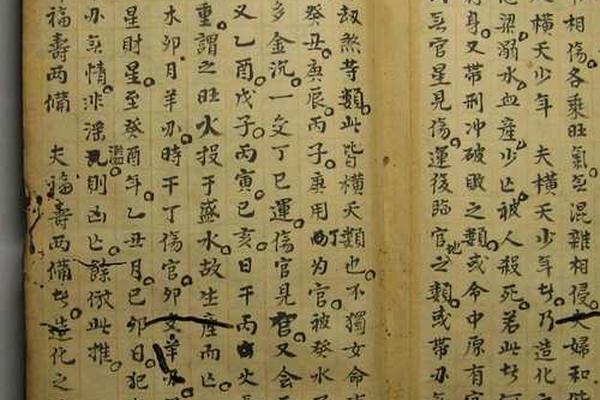 相傷各乘旺氣混雜相侵夫婦和
橫夭少年 夫橫夭少年者乃造化
梁溺水血產少亡被人殺死若此者
身又帶刑冲破敗之類或命中原有官
官星見傷運後臨官地之類或帶
劫煞等類此皆橫夭類也不獨女命
癸丑庚辰丙子庚用丁為官被癸水
多金沉一交丁巳運傷官見官又會
又乙酉戊子丙寅己亥日干丙火
重謂之旺火投于盛水故生產而亡
水卯月羊刃時干丁傷官卯
星財星至癸酉年乙丑月己卯日犯
無情淫濫則凶亡餘倣此推
福壽兩備 夫福壽兩備者造化之